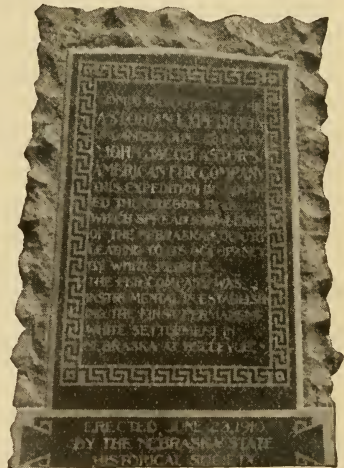 COMMEMORATIVE OF THE
ASTORIAN EXPEDITION
JOHN JACOB ASTOR'S
AMERICAN FUR COMPANY
THIS EXPEDITION
ED THE OREGON
WHICH SPREAD KNOWLEDGE
OF THE NEBRASKA
LEADING TO ITS
BY WHITE PEOPLE
THE FUR COMPANY WAS
INSTRUMENTAL IN ESTABLISH
ING THE FIRST PERMANENT
WHITE SETTLEMENT IN
NEBRASKA AT BELLEVUE
ERECTED, JUNE 23, 1910
BY THE NEBRASKA STATE
HISTORICAL SOCIETY